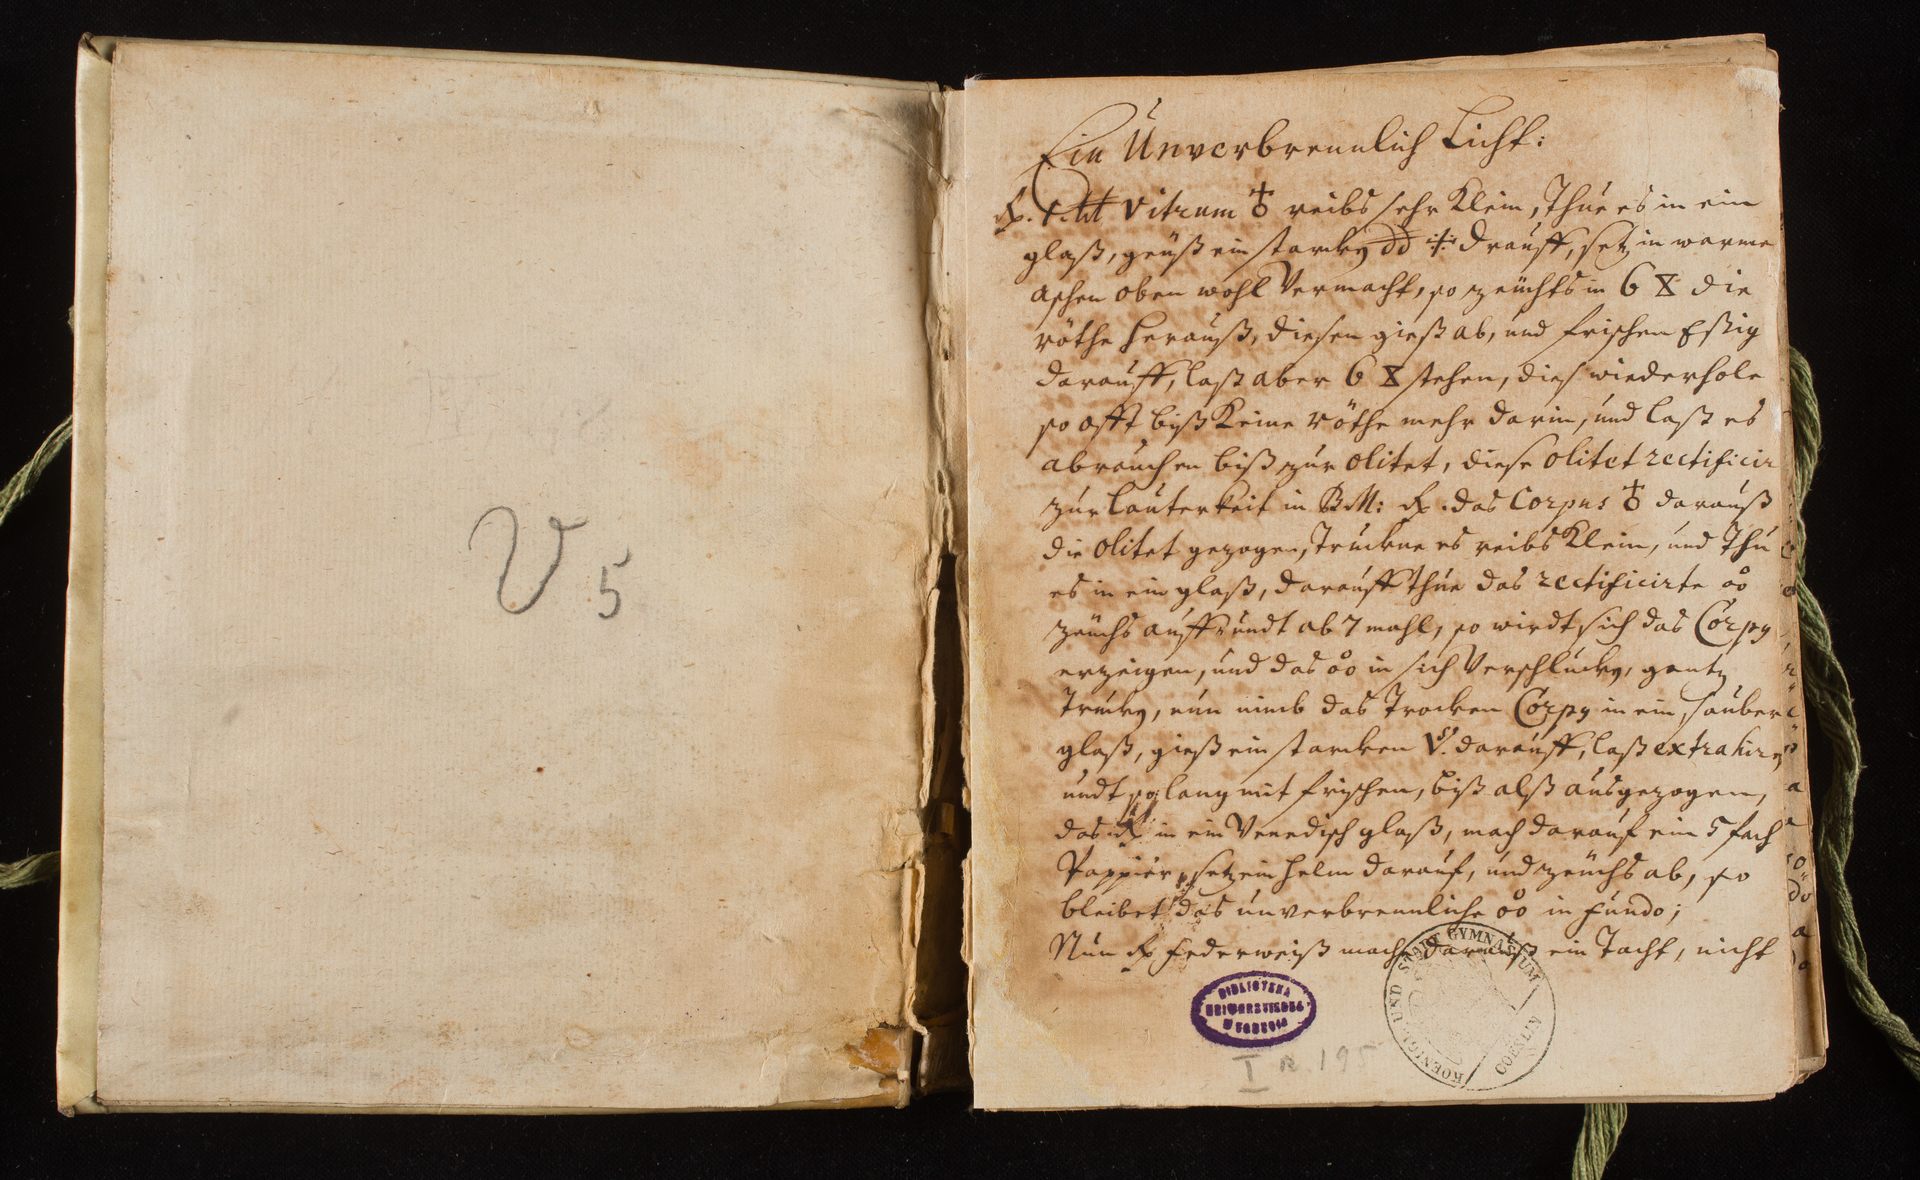 V 5
Ein Unverbrennlich Licht:
℞. Vitrum ♁ reibs sehr Klein, Thue es in ein
glaß, geuß ein starcken drauff, setz in warme
aschen oben wohl Vermacht, so zeuchts in 6 die
röthe herauß, diesen gieß ab, und frischen Eßig
darauff, laß aber 6 stehen, dies wiederhole
so offt biß Keine röthe mehr darin, und laß es
abrauchen biß zur olitet, diese olitet rectificir
zur lauterkeit in BM: ℞. das Corpus ♁ darauß
die olitet gezogen, truckne es reibs Klein, und Thu
es in ein glaß, darauff thue das rectificirte
zeuchs auff undt ab 7 mahl, so wirdt sich das Corpus
erzeigen, und das in sich Verschlucken, gantz
trucken, nun nimb das Trocken Corpus in ein sauber
glaß, gieß ein starcken darauff, laß extrahiren
undt so lang mit frischen, biß alß ausgezogen,
das in ein Venedisch glaß, mach darauf ein 5 fach
Pappier, setz ein helm darauf, und zeuchs ab, so
bleibet das unverbrennliche in fundo;
Nun ℞ federweiß mache darauß ein Tacht, nicht
BIBLIOTEKA
UNIWERSYTECKA
W TORUNIU
KOENIGL. UND STADT GYMNASIUM COESLIN
I R. 195